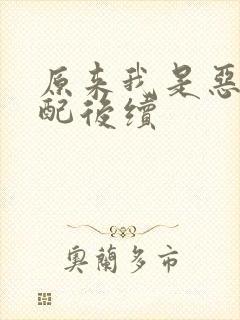 原来我是恶
配後續
奧蘭多市